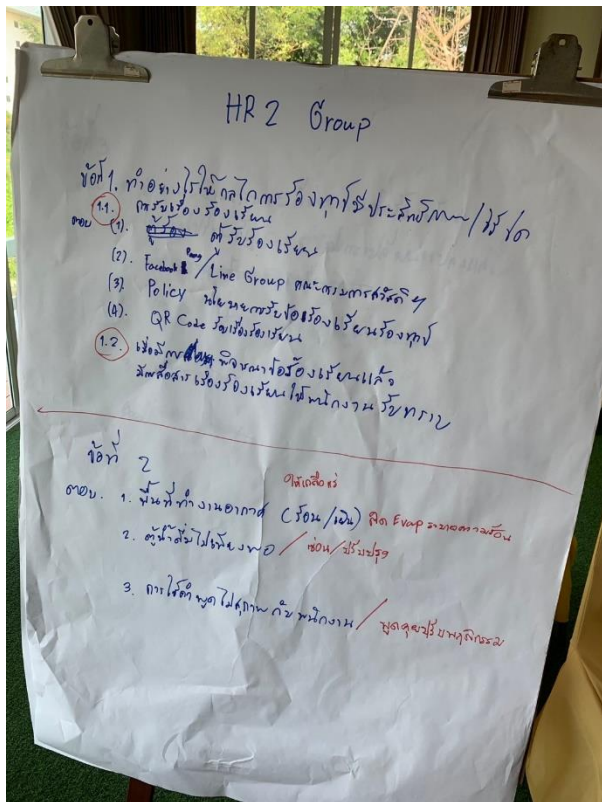 HR 2 Group
ข้อที่ 1. ทำอย่างไรให้กลไกการร้องทุกข์มีประสิทธิภาพ/
1.1. การรับเรื่องร้องเรียน
ตอบ (1). ตู้รับร้องเรียน
(2). Facebook Page / Line Group คณะกรรมการสวัสดิฯ
(3) Policy นโยบายการรับข้อร้องเรียนร้องทุกข์
(4). QR Code รับเรื่องร้องเรียน
1.2. เมื่อมีการ พิจารณาข้อร้องเรียนแล้ว
มีการสื่อสารเรื่องร้องเรียนให้พนักงาน รับทราบ
ข้อที่ 2
ตอบ. 1. พื้นที่ทำงานอากาศ (ร้อน/เย็น) ติด Evap ระบายความร้อน
2. ตู้น้ำดื่มไม่เพียงพอ / ซ่อม/ปรับปรุง
3. การใช้คำพูดไม่สุภาพ กับ พนักงาน / พูดคุยปรับพฤติกรรม